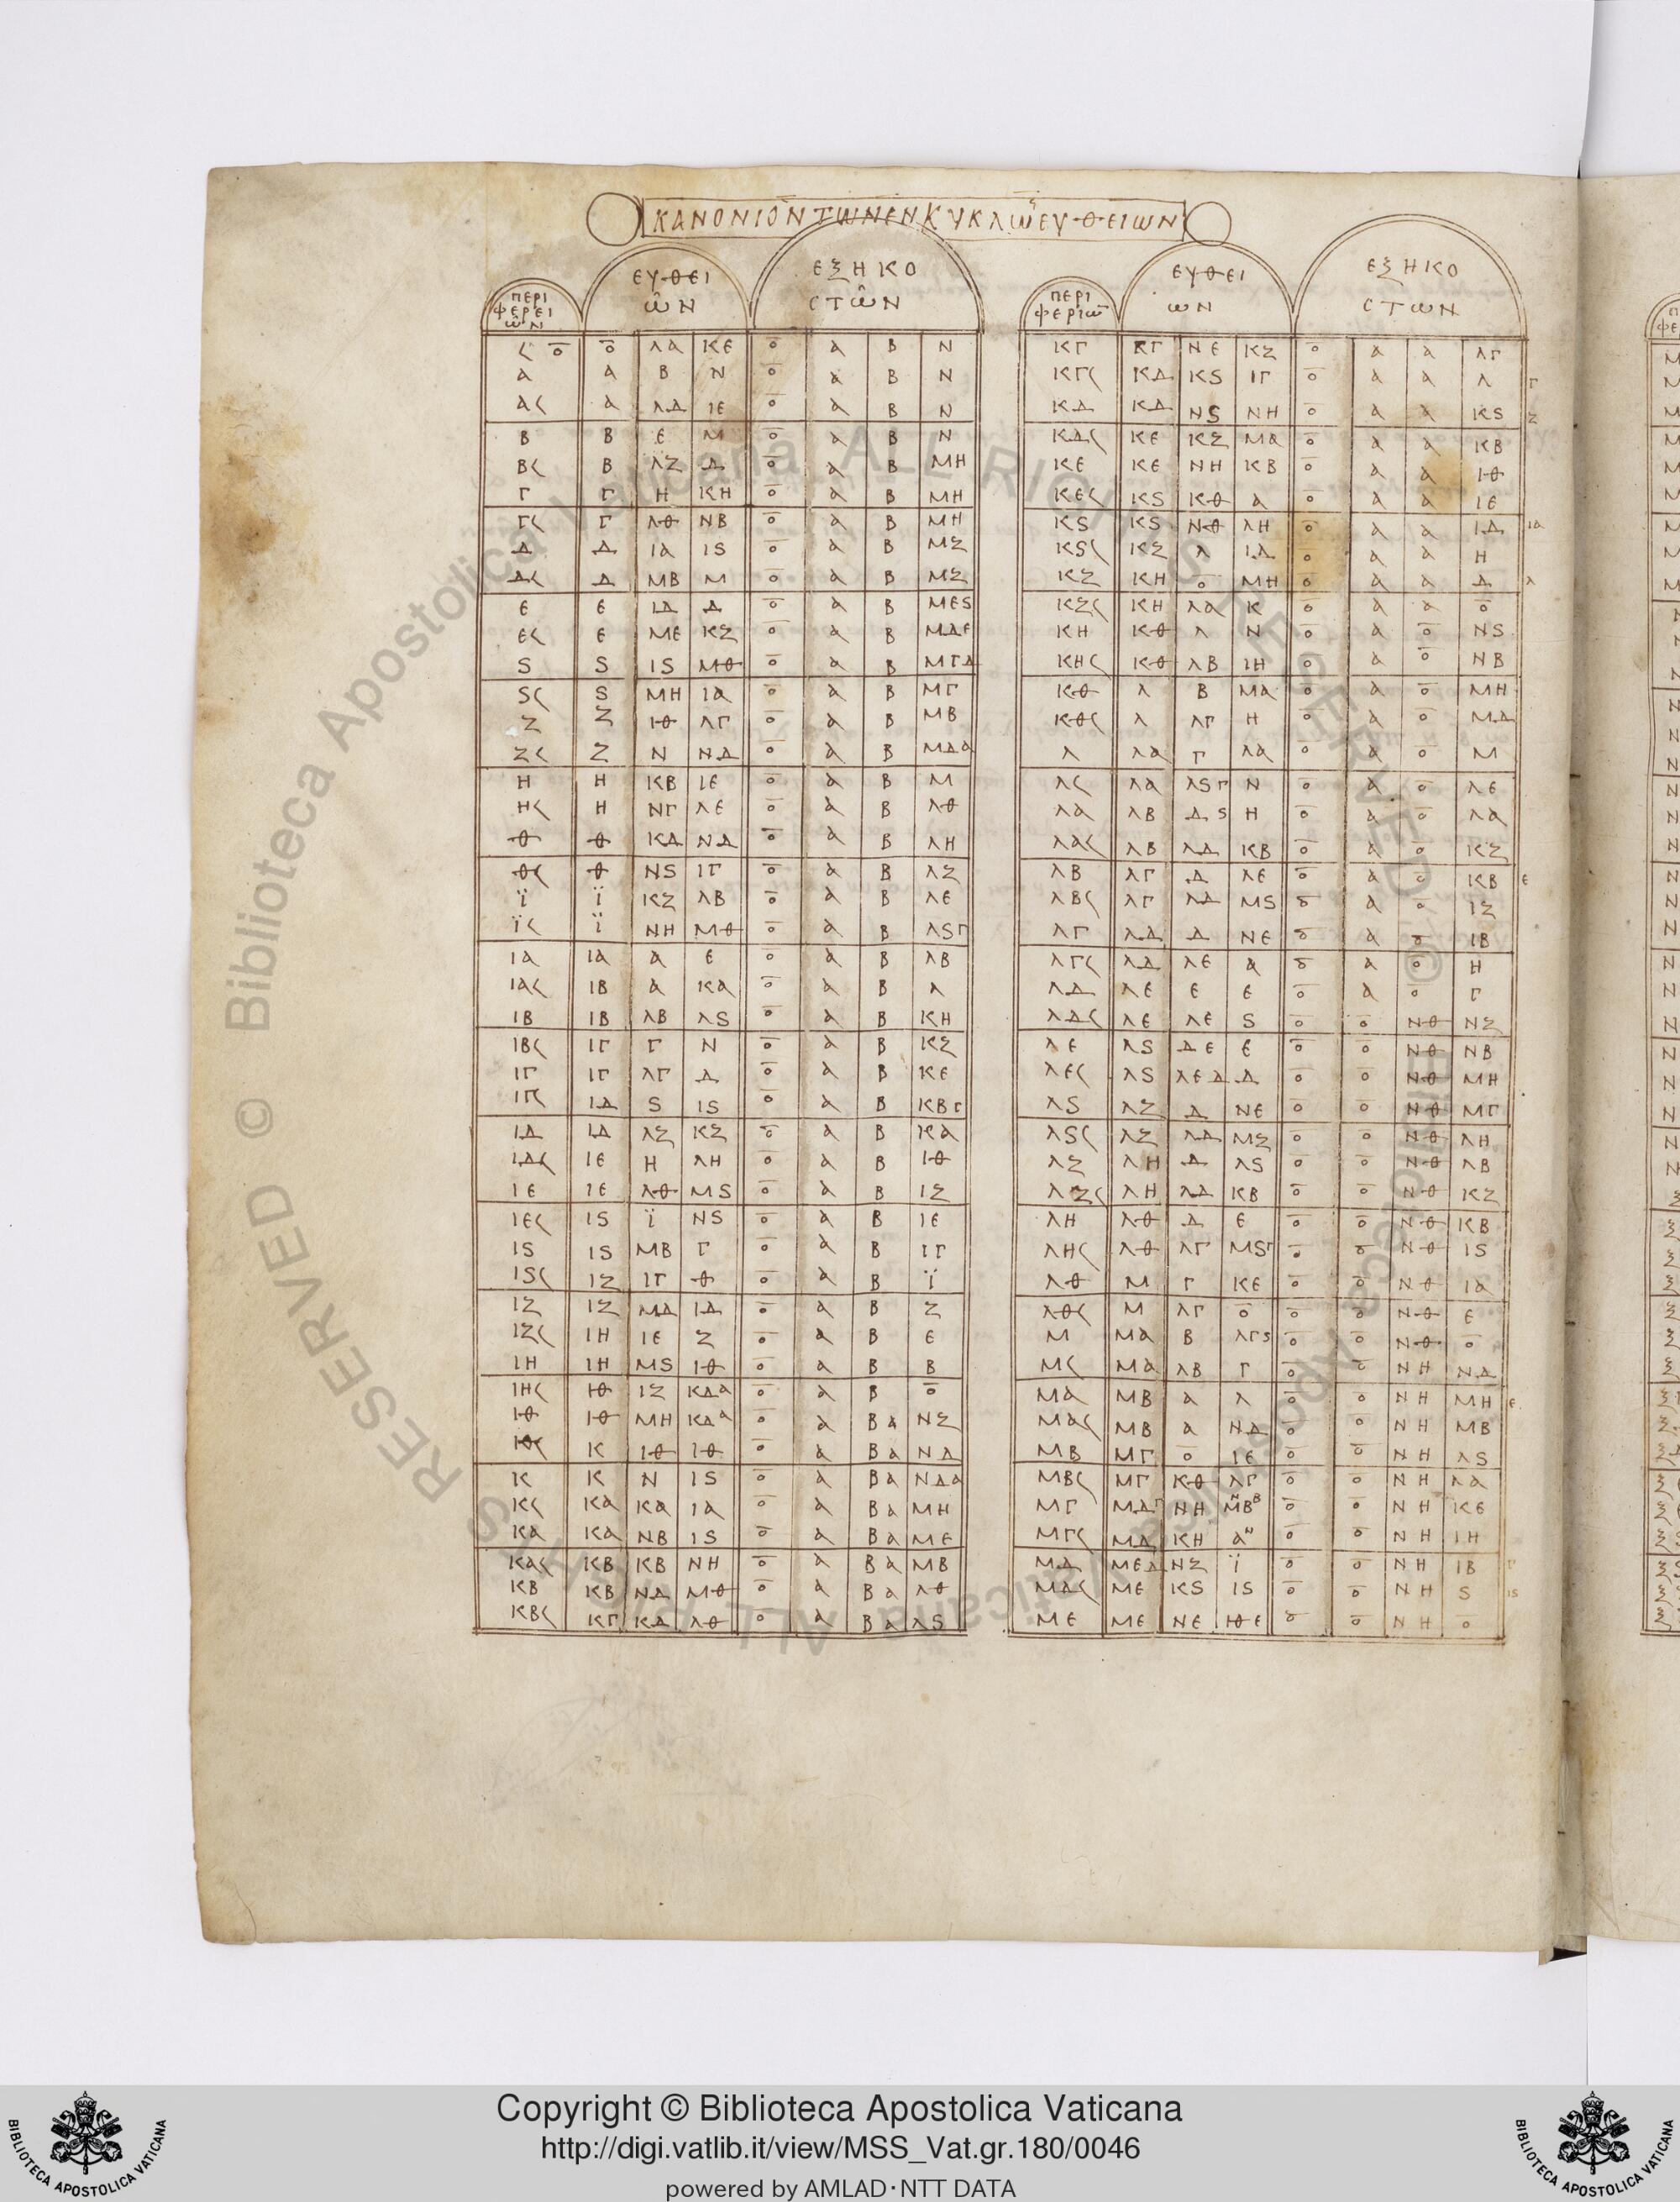 ΚΑΝΟΝΙΟΝ ΤΩΝ ΕΝ ΚΥΚΛΩ ΕΥΘΕΙΩΝ
ΠΕΡΙ ΕΥΘΕΙ ΕΞΗΚΟ
ΦΕΡΕΙ ΩΝ ϹΤΩΝ
ΩΝ
< ō ō ΛΑ ΚΕ ō Α Β Ν
Α Α Β Ν ō Α Β Ν
Α< Α ΛΔ ΙΕ ō Α Β Ν
Β Β Ε Μ ō Α Β Ν
Β< Β ΛΖ Δ ō Α Β ΜΗ
Γ Γ Η ΚΗ ō Α Β ΜΗ
Γ< Γ ΛΘ ΝΒ ō Α Β ΜΗ
Δ Δ ΙΑ ΙϚ ō Α Β ΜΖ
Δ< Δ ΜΒ Μ ō Α Β ΜΖ
Ε Ε ΙΔ Δ ō Α Β ΜΕϚ
Ε< Ε ΜΕ ΚΖ ō Α Β ΜΔΕ
Ϛ Ϛ ΙϚ ΜΘ ō Α Β ΜΓΔ
Ϛ< Ϛ ΜΗ ΙΑ ō Α Β ΜΓ
Ζ Ζ ΙΘ ΛΓ ō Α Β ΜΒ
Ζ< Ζ Ν ΝΔ ō Α Β ΜΔΑ
Η Η ΚΒ ΙΕ ō Α Β Μ
Η< Η ΝΓ ΛΕ ō Α Β ΛΘ
Θ Θ ΚΔ ΝΔ ō Α Β ΛΗ
Θ< Θ ΝϚ ΙΓ ō Α Β ΛΖ
Ϊ Ϊ ΚΖ ΛΒ ō Α Β ΛΕ
Ϊ< Ϊ ΝΗ ΜΘ ō Α Β ΛϚΓ
ΙΑ ΙΑ Α Ε ō Α Β ΛΒ
ΙΑ< ΙΒ Α ΚΑ ō Α Β Λ
ΙΒ ΙΒ ΛΒ ΛϚ ō Α Β ΚΗ
ΙΒ< ΙΓ Γ Ν ō Α Β ΚΖ
ΙΓ ΙΓ ΛΓ Δ ō Α Β ΚΕ
ΙΓ< ΙΔ Ϛ ΙϚ ō Α Β ΚΒΓ
ΙΔ ΙΔ ΛΖ ΚΖ ō Α Β ΚΑ
ΙΔ< ΙΕ Η ΛΗ ō Α Β ΙΘ
ΙΕ ΙΕ ΛΘ ΜϚ ō Α Β ΙΖ
ΙΕ< ΙϚ Ϊ ΝϚ ō Α Β ΙΕ
ΙϚ ΙϚ ΜΒ Γ ō Α Β ΙΓ
ΙϚ< ΙΖ ΙΓ Θ ō Α Β Ϊ
ΙΖ ΙΖ ΜΔ ΙΔ ō Α Β Ζ
ΙΖ< ΙΗ ΙΕ Ζ ō Α Β Ε
ΙΗ ΙΗ ΜϚ ΙΘ ō Α Β Β
ΙΗ< ΙΘ ΙΖ ΚΔΑ ō Α Β ō
ΙΘ ΙΘ ΜΗ ΚΔΑ ō Α ΒΑ ΝΖ
ΙΘ< Κ ΙΘ ΙΘ ō Α ΒΑ ΝΔ
Κ Κ Ν ΙϚ ō Α ΒΑ ΝΔΑ
Κ< ΚΑ ΚΑ ΙΑ ō Α ΒΑ ΜΗ
ΚΑ ΚΑ ΝΒ ΙϚ ō Α ΒΑ ΜΕ
ΚΑ< ΚΒ ΚΒ ΝΗ ō Α ΒΑ ΜΒ
ΚΒ ΚΒ ΝΔ ΜΘ ō Α ΒΑ ΛΘ
ΚΒ< ΚΓ ΚΔ ΛΘ ō Α ΒΑ ΛϚ
ΠΕΡΙ ΕΥΘΕΙ ΕΞΗΚΟ
ΦΕΡΙΩ ΩΝ ϹΤΩΝ
ΚΓ ΚΓ ΝΕ ΚΖ ō Α Α ΛΓ
ΚΓ< ΚΔ ΚϚ ΙΓ ō Α Α Λ Γ
ΚΔ ΚΔ ΝϚ ΝΗ ō Α Α ΚϚ Ζ
ΚΔ< ΚΕ ΚΖ ΜΑ ō Α Α ΚΒ
ΚΕ ΚΕ ΝΗ ΚΒ ō Α Α ΙΘ
ΚΕ< ΚϚ ΚΘ Α ō Α Α ΙΕ
ΚϚ ΚϚ ΝΘ ΛΗ ō Α Α ΙΔ ΙΑ
ΚϚ< ΚΖ Λ ΙΔ ō Α Α Η
ΚΖ ΚΗ ō ΜΗ ō Α Α Δ Λ
ΚΖ< ΚΗ ΛΑ Κ ō Α Α ō
ΚΗ ΚΘ Λ Ν ō Α ō ΝϚ
ΚΗ< ΚΘ ΛΒ ΙΗ ō Α ō ΝΒ
ΚΘ Λ Β ΜΑ ō Α ō ΜΗ
ΚΘ< Λ ΛΓ Η ō Α ō ΜΔ
Λ ΛΑ Γ ΛΑ ō Α ō Μ
Λ< ΛΑ ΛϚΓ Ν ō Α ō ΛΕ
ΛΑ ΛΒ ΔϚ Η ō Α ō ΛΑ
ΛΑ< ΛΒ ΛΔ ΚΒ ō Α ō ΚΖ
ΛΒ ΛΓ Δ ΛΕ ō Α ō ΚΒ Ε
ΛΒ< ΛΓ ΛΔ ΜϚ ō Α ō ΙΖ
ΛΓ ΛΔ Δ ΝΕ ō Α ō ΙΒ
ΛΓ< ΛΔ ΛΕ Α ō Α ō Η
ΛΔ ΛΕ Ε Ε ō Α ō Γ
ΛΔ< ΛΕ ΛΕ Ϛ ō ō ΝΘ ΝΖ
ΛΕ ΛϚ ΔΕ Ε ō ō ΝΘ ΝΒ
ΛΕ< ΛϚ ΛΕΔ Δ ō ō ΝΘ ΜΗ
ΛϚ ΛΖ Δ ΝΕ ō ō ΝΘ ΜΓ
ΛϚ< ΛΖ ΛΔ ΜΖ ō ō ΝΘ ΛΗ
ΛΖ ΛΗ Δ ΛϚ ō ō ΝΘ ΛΒ
ΛΖ< ΛΗ ΛΔ ΚΒ ō ō ΝΘ ΚΖ
ΛΗ ΛΘ Δ Ε ō ō ΝΘ ΚΒ
ΛΗ< ΛΘ ΛΓ ΜϚΓ ō ō ΝΘ ΙϚ
ΛΘ Μ Γ ΚΕ ō ō ΝΘ ΙΑ
ΛΘ< Μ ΛΓ ō ō ō ΝΘ Ε
Μ ΜΑ Β ΛΓϚ ō ō ΝΘ ō
Μ< ΜΑ ΛΒ Γ ō ō ΝΗ ΝΔ
ΜΑ ΜΒ Α Λ ō ō ΝΗ ΜΗ Ε
ΜΑ< ΜΒ Α ΝΔ ō ō ΝΗ ΜΒ
ΜΒ ΜΓ ō ΙΕ ō ō ΝΗ ΛϚ
ΜΒ< ΜΓ ΚΘ ΛΓ ō ō ΝΗ ΛΑ
ΜΓ ΜΔΓ ΝΗ ΜΒΒ ō ō ΝΗ ΚΕ
ΜΓ< ΜΔ ΚΗ ΑΝ ō ō ΝΗ ΙΗ
ΜΔ ΜΕΔ ΝΖ Ϊ ō ō ΝΗ ΙΒ Γ
ΜΔ< ΜΕ ΚϚ ΙϚ ō ō ΝΗ Ϛ ΙϚ
ΜΕ ΜΕ ΝΕ ΙΘΕ ō ō ΝΗ ō
© Biblioteca Apostolica Vaticana ALL RIGHTS RESERVED
Copyright © Biblioteca Apostolica Vaticana
http://digi.vatlib.it/view/MSS_Vat.gr.180/0046
powered by AMLAD·NTT DATA
BIBLIOTECA APOSTOLICA VATICANA
BIBLIOTECA APOSTOLICA VATICANA